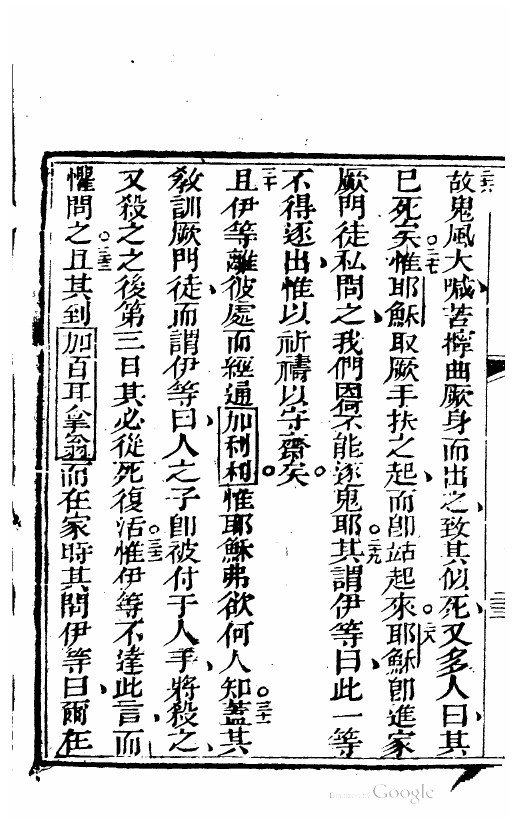 二六故鬼風大喊苦擰曲厥身而出之致其似死又多人曰其
已死矣二七惟耶穌取厥手扶之起而卽站起來二八耶穌卽進家
厥門徒私問之我們因何不能逐鬼耶二九其謂伊等曰此一等
不得逐出惟以祈禱以守齋矣
三十且伊等離彼處而經通加利利惟耶穌弗欲何人知三一蓋其
教訓厥門徒而謂伊等曰人之子卽被付于人手將殺之
又殺之之後第三日其必從死復活三二惟伊等不達此言而
懼問之三三且其到加百耳拿翁而在家時其問伊等曰爾在
Digitized by Google